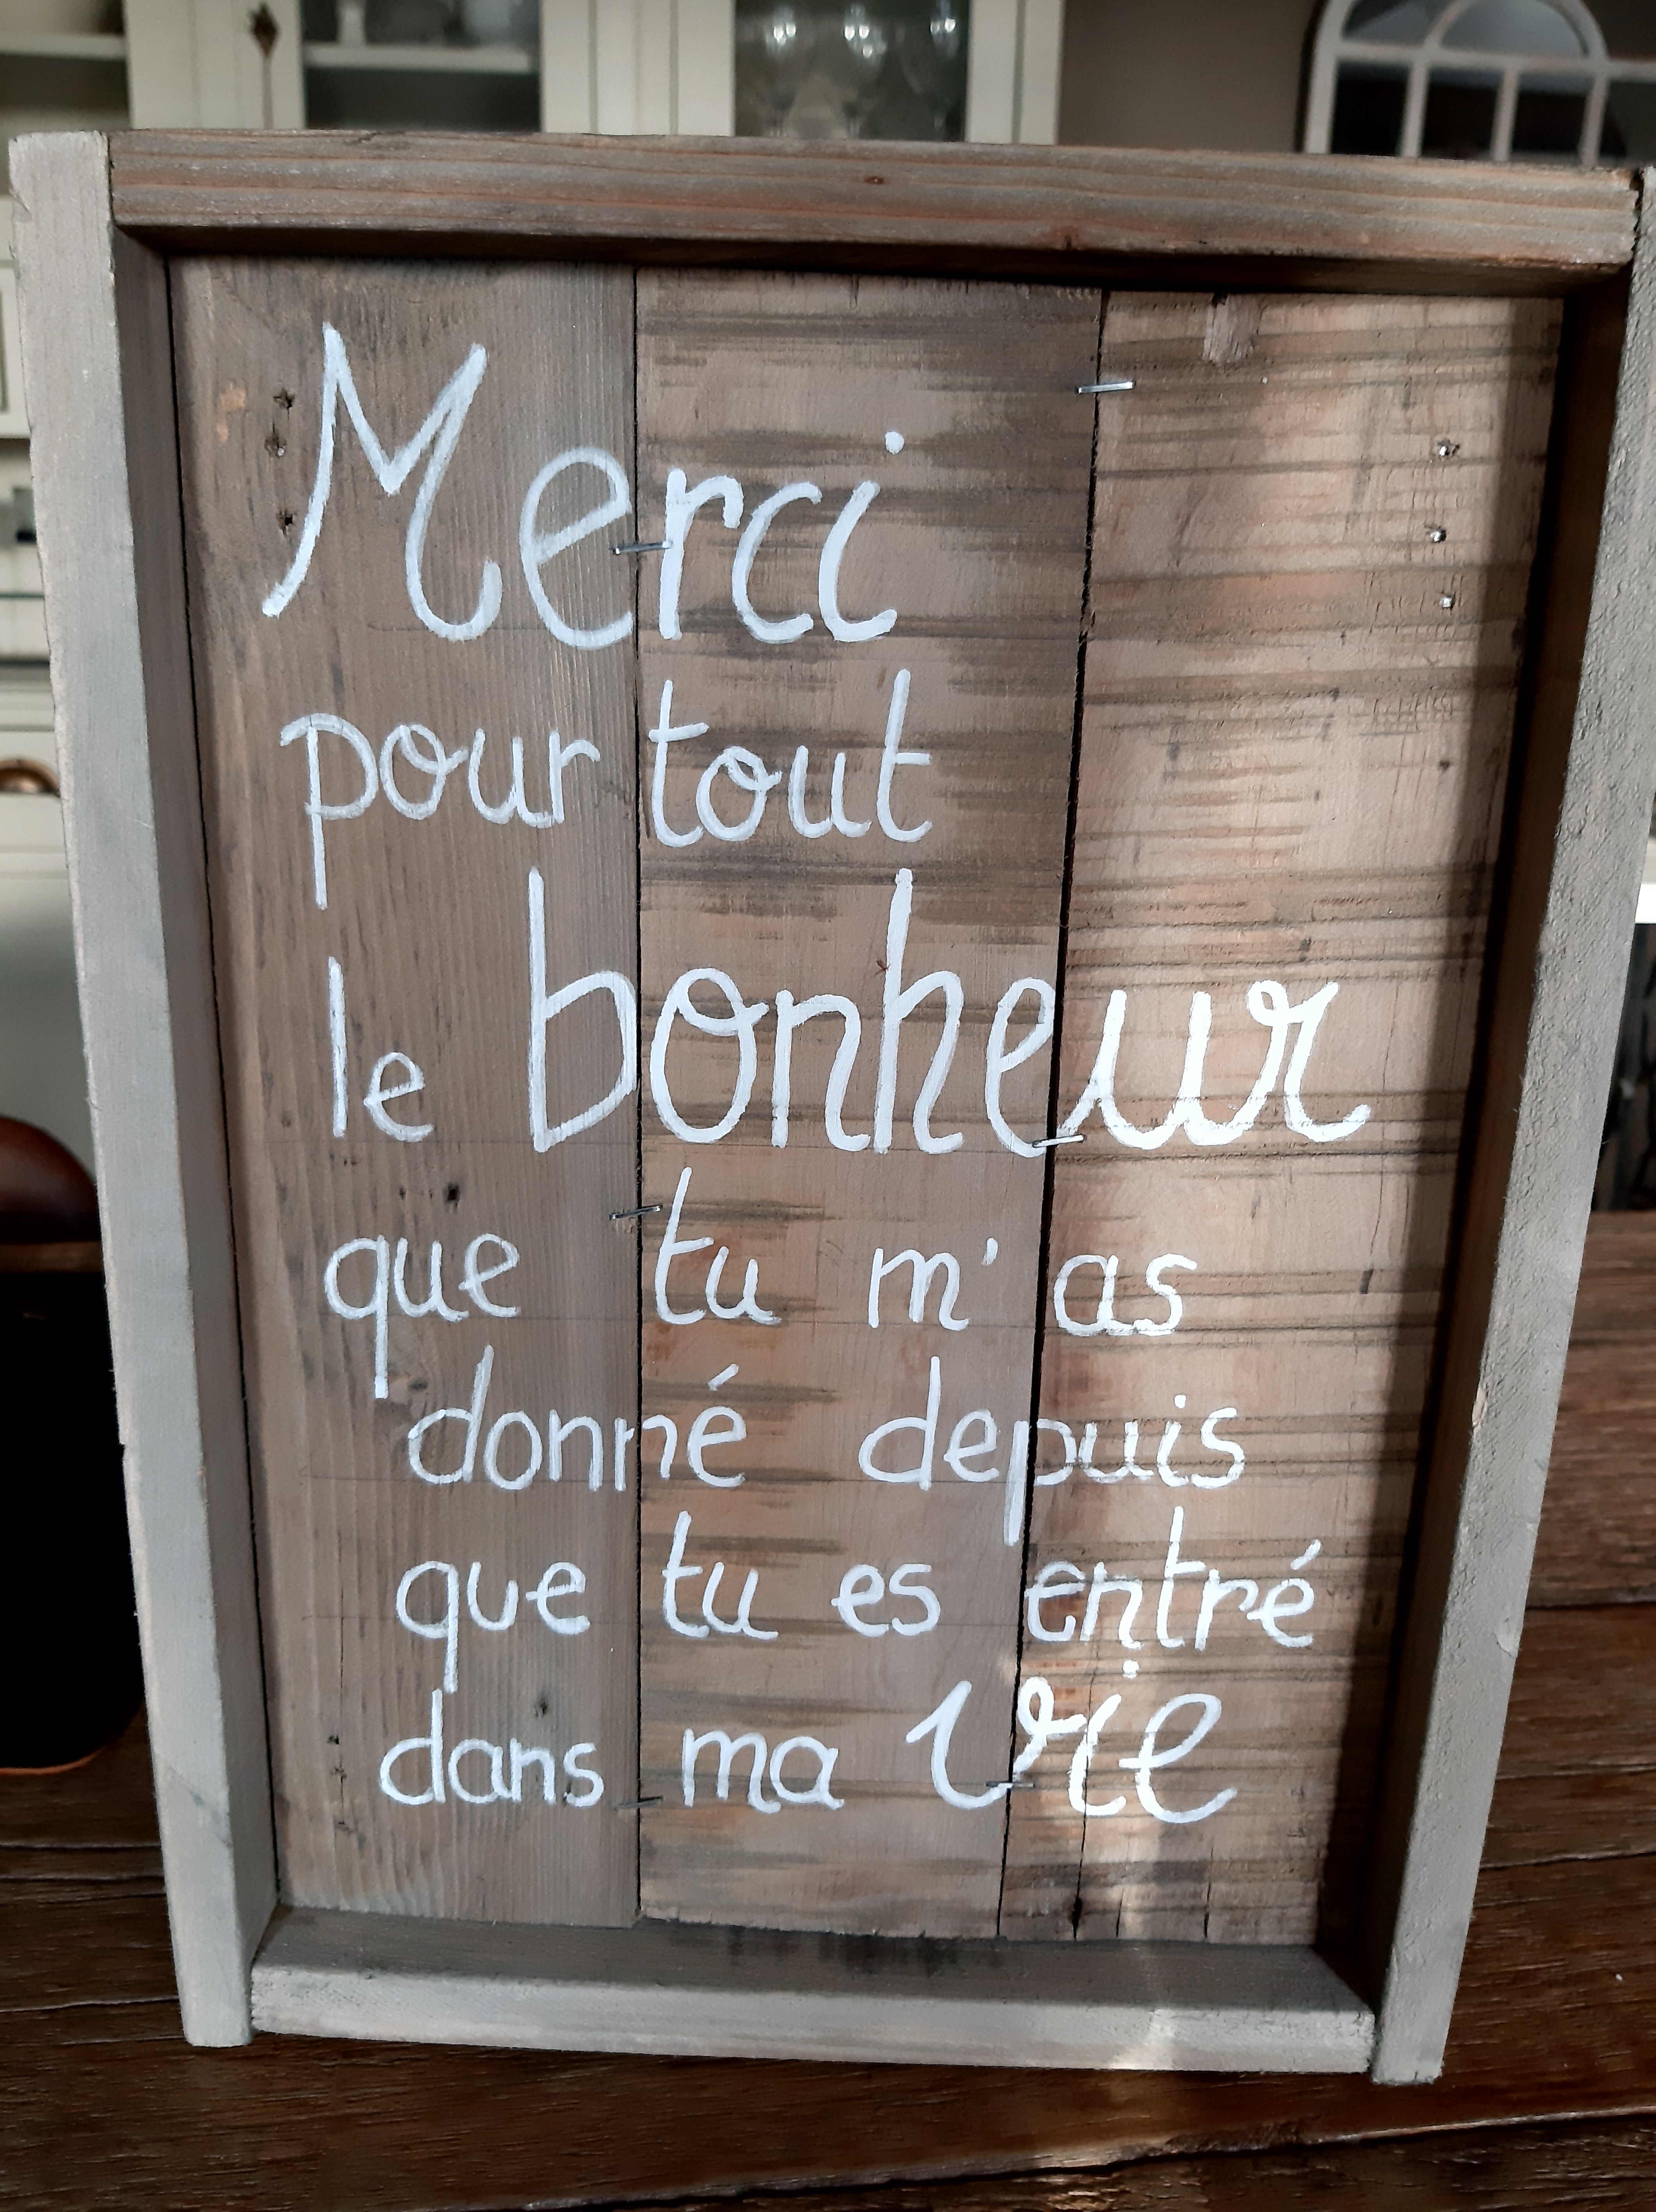 Merci
pour tout
le bonheur
que tu m'as
donné depuis
que tu es entré
dans ma vie